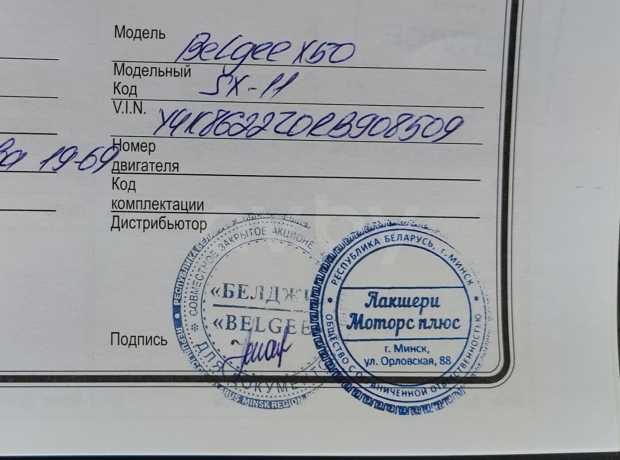 Модель Belgee X50
Модельный
Код SX-11
V.I.N. Y4K8622Z0RB908509
19-69
Номер
двигателя
Код
комплектации
Дистрибьютор
СОВМЕСТНОЕ ЗАКРЫТОЕ АКЦИОНЕ
«БЕЛДЖИ
«BELGEE
ДЛЯ ДОКУМЕНТО
MINSK REGION
РЕСПУБЛИКА БЕЛАРУСЬ, г. МИНСК
Лакшери
Моторс плюс
г. Минск,
ул. Орловская, 88
ОБЩЕСТВО С ОГРАНИЧЕННОЙ ОТВЕТСТВЕННОСТЬЮ
Подпись